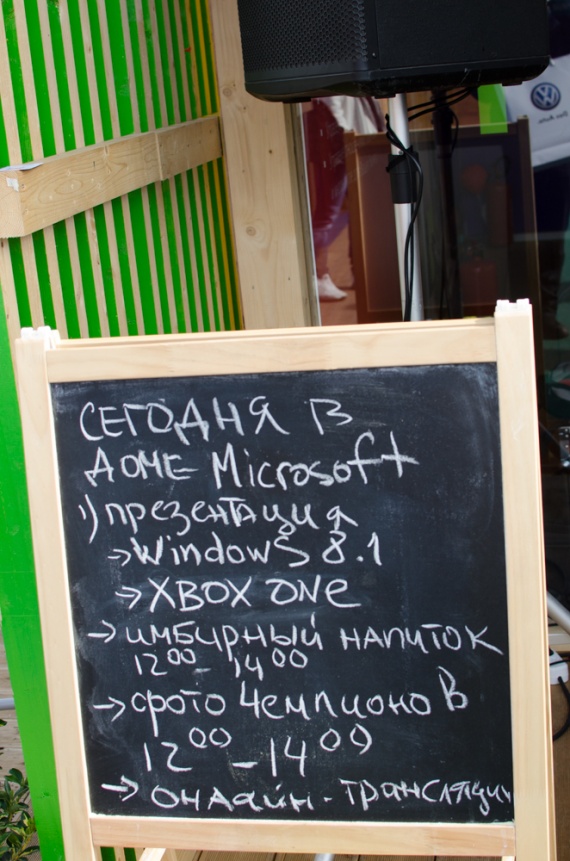 Das Auto.
СЕГОДНЯ В
ДОМЕ Microsoft
1) презентация
→ WindowS 8.1
→ XBOX ONE
→ имбирный напиток
12⁰⁰ - 14⁰⁰
→ фото Чемпионов
12⁰⁰ - 14⁰⁰
→ онлайн - трансляции